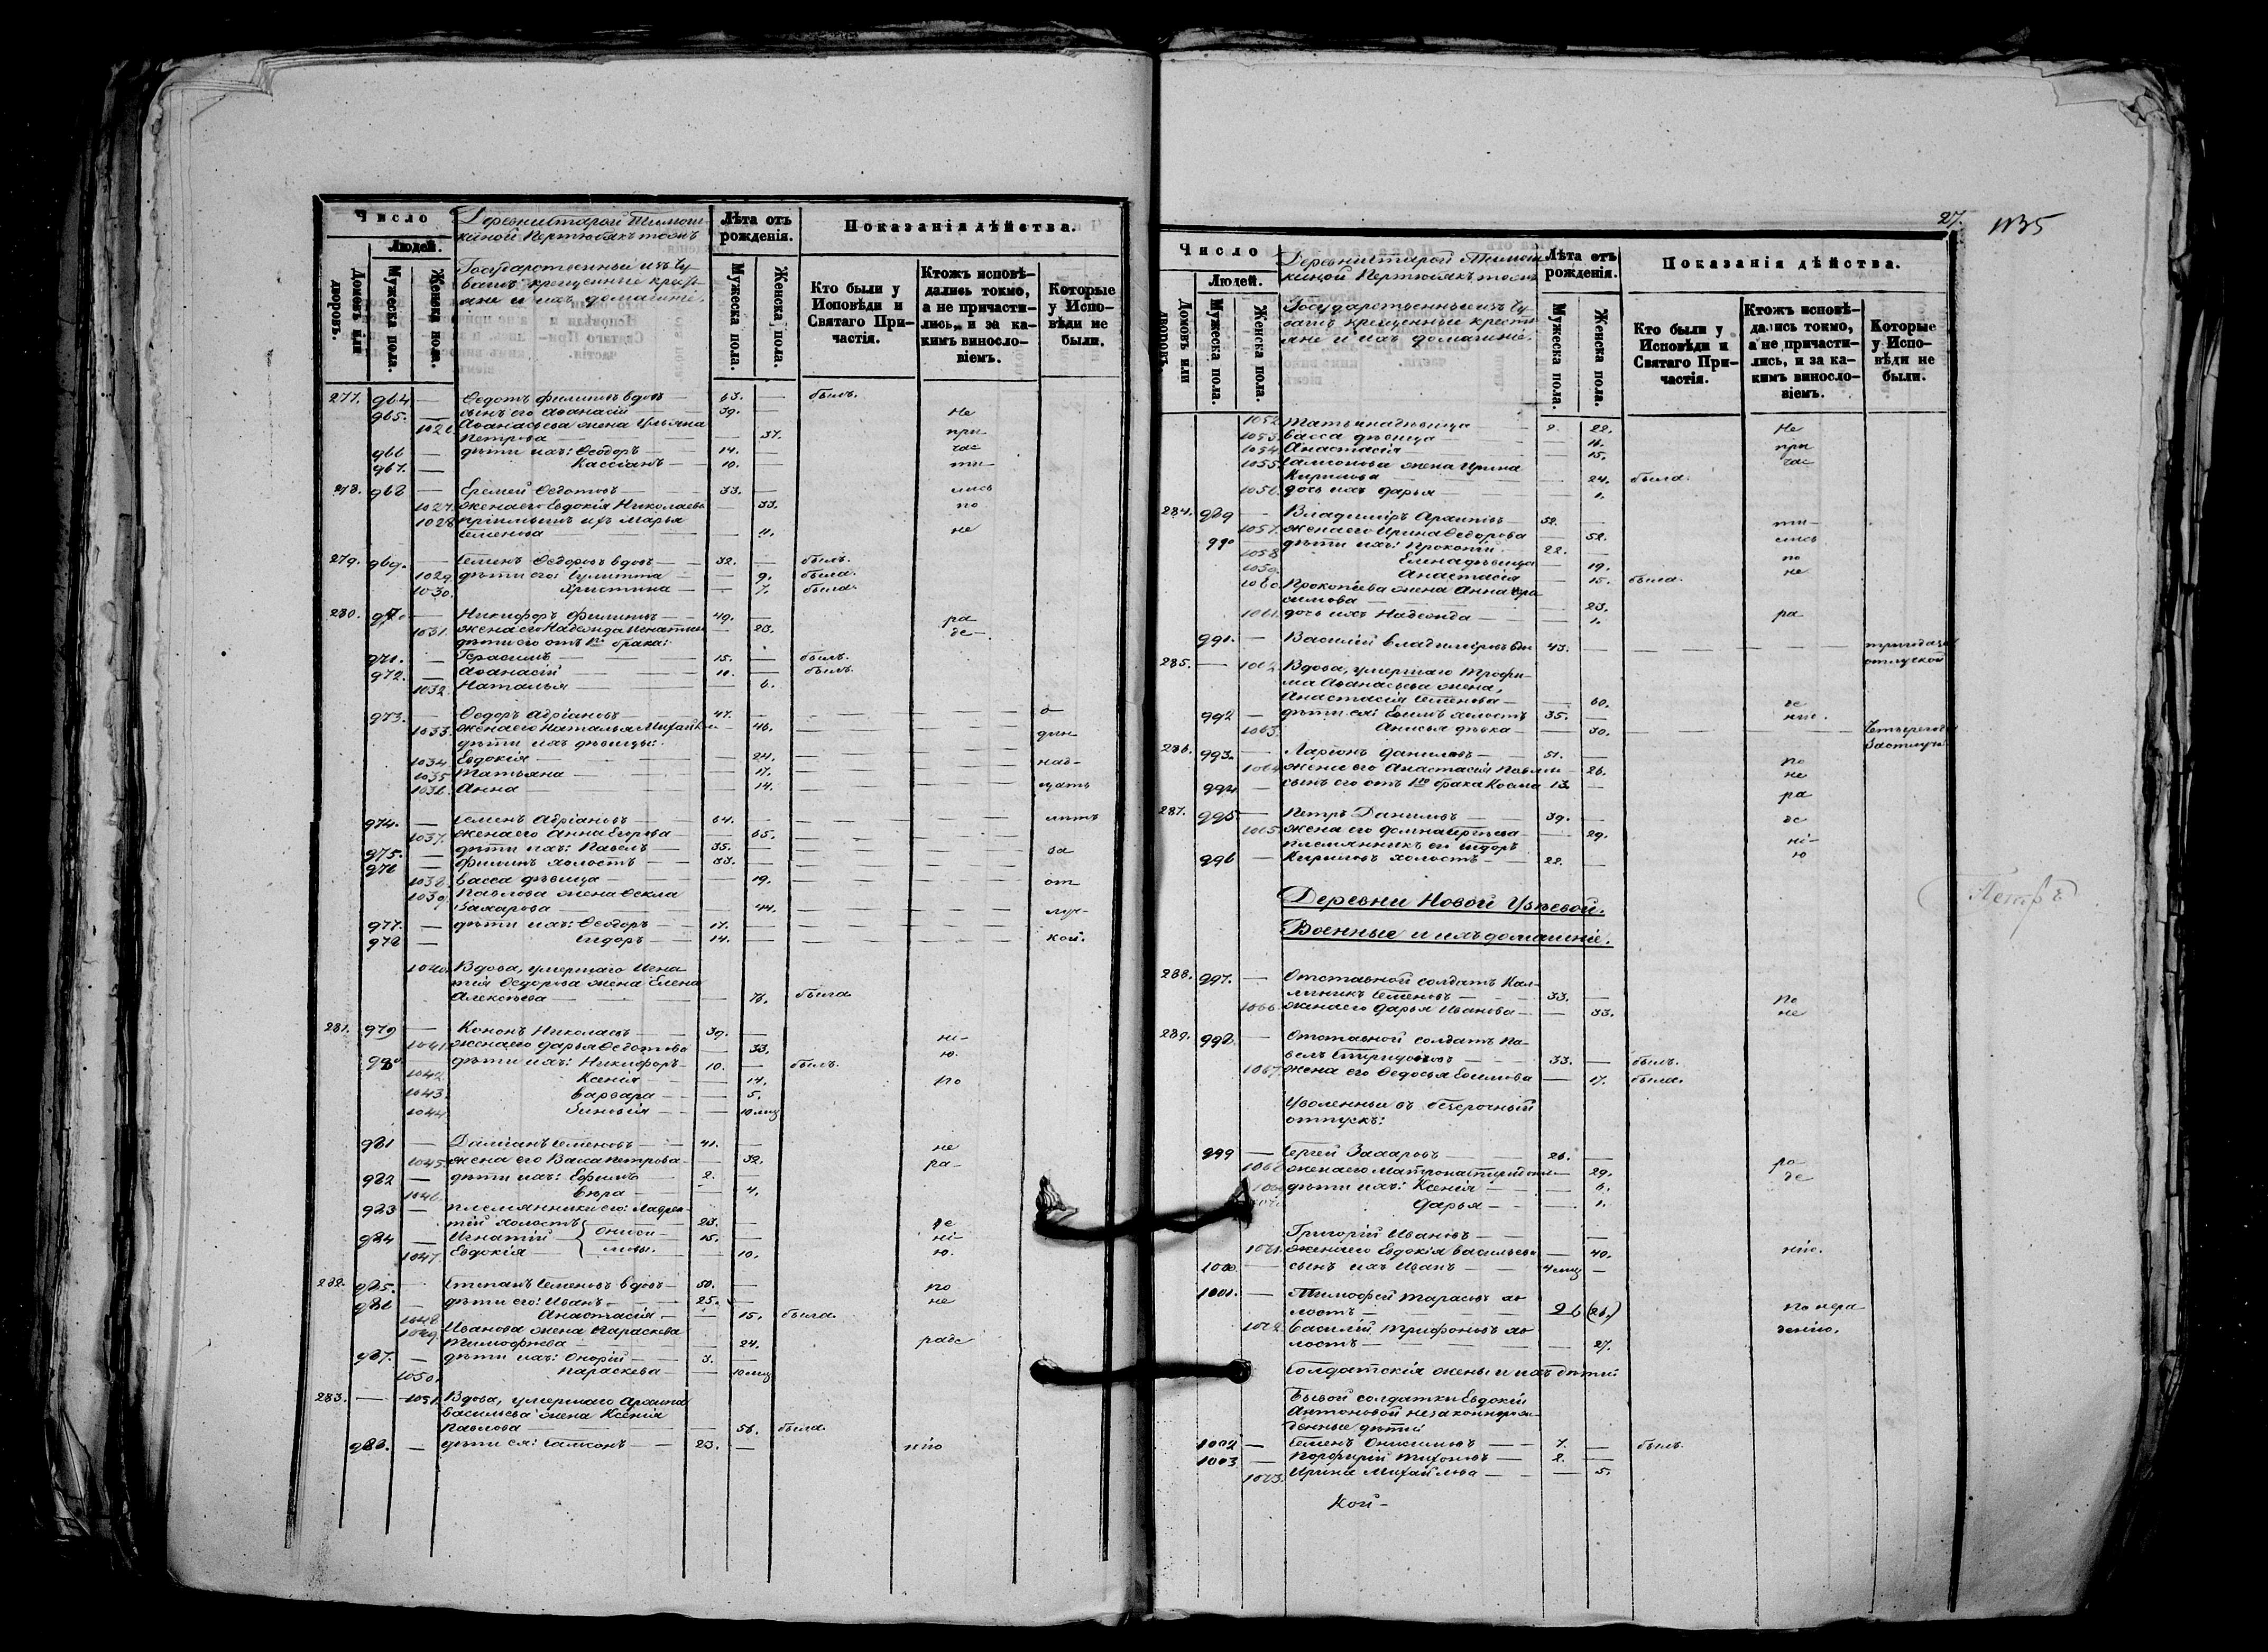 Число
Людей.
Домовъ или дворовъ.
Мужеска пола.
Женска пола.
Деревни Старой Тимош-
киной Пертюбякъ тожъ
Государственные изъ Чу-
вашъ крещенные кресть-
яне и ихъ домашніе.
Лѣта отъ рожденія.
Мужеска пола.
Женска пола.
Показанія дѣйства.
Кто были у Исповѣди и Святаго При-частія.
Ктожъ исповѣ-дались токмо, а не причасти-лись, и за ка-кимъ винословіемъ.
Которые у Испо-вѣди не были.
277. 964 — Ѳедотъ Филиповъ вдовъ — 63. — былъ.
965. — сынъ его Аѳанасій — 39. — Не
1026 Аѳанасьева жена Ульяна
Петрова — 37. при
966 — дѣти ихъ: Ѳеодоръ — 14. — час
967. — Кассіанъ — 10. — ти-
278. 968 — Еремей Ѳедотовъ — 33. — лись
1027. жена его Евдокія Николаева — 33. по
1028 пріимышъ ихъ Марья
Семенова — 11. не
279. 969. — Семенъ Ѳедоровъ вдовъ — 32. — былъ.
1029. дѣти его: Іулитта — 9. была.
1030. Христина — 7. была.
280. 970 — Никифоръ Филиповъ — 49. — ра
1031. жена его Надежда Игнатьева — 23. де-
дѣти его отъ 1го брака:
971. — Герасимъ — 15. — былъ.
972. — Аѳанасій — 10. — былъ.
1032. Наталья — 6.
973. Ѳедоръ Адріановъ — 47. — о-
1033. жена его Наталья Михайл — 46. дин
дѣти ихъ дѣвицы:
1034 Евдокія — 24. над-
1035 Татьяна — 17.
1036. Анна — 14. цать
974. — Семенъ Адріановъ — 64. — лѣтъ
1037. жена его Анна Егорова — 65.
975. — дѣти ихъ: Павелъ — 35. — за
976 — Филипъ холостъ — 33. —
1038. Васса дѣвица — 19. от
1039. Павлова жена Ѳекла
Захарова — 44. луч-
977. — дѣти ихъ: Ѳеодоръ — 17. —
978 — Сидоръ — 14. — кой.
1040. Вдова, умершаго Игна
тія Ѳедорова жена Елена
Алексѣева — 76. была.
281. 979 — Кононъ Николаевъ — 39. — ні-
1041. жена его Дарья Ѳедотова — 33. ю.
980 — дѣти ихъ: Никифоръ — 10. — былъ.
1042. Ксенія — 14. по
1043. Варвара — 5.
1044 Зиновія — 10 мѣс
981 — Даміанъ Семеновъ — 41. — не
1045. жена его Васса Петрова — 32. ра-
982 — дѣти ихъ: Ефимъ — 2.
1046. Ѳекла — 4.
983 — племянники его: Лаврен-
тій холостъ — 23. — де
984 — Игнатій — Ониси- — 15. — ні-
1047. Евдокія — мовы. — 10. ю.
282. 985. — Степанъ Семеновъ вдовъ — 50. — по
986 — дѣти его: Иванъ — 25. — не
1048 Анастасія — 15. была.
1049. Иванова жена Параскева
Тимофѣева — 24. раде
987. — дѣти ихъ: Онорій — 3. —
1050. Параскева — 10 мѣс
283. — 1051. Вдова, умершаго Архипа
Васильева жена Ксенія
Павлова — 56. была.
988. — дѣти ея: Самсонъ — 23. — нію
27. 1135
Число
Людей.
Домовъ или дворовъ.
Мужеска пола.
Женска пола.
Деревни Старой Тимош
киной Пертюбякъ тожъ
Государственные изъ Чу-
вашъ крещенные кресть
яне и ихъ домашніе.
Лѣта отъ рожденія.
Мужеска пола.
Женска пола.
Показанія дѣйства.
Кто были у Исповѣди и Святаго При-частія.
Ктожъ исповѣ-дались токмо, а не причасти-лись, и за ка-кимъ винословіемъ.
Которые у Испо-вѣди не были.
1052 Татьяна дѣвица — 22. Не
1053. Васса дѣвица — при
1054 Анастасія — 15. час
1055. Самсонова жена Ирина
Кирилова — 24. была.
1056. дочь ихъ Дарья — 1.
284. 989 — Владиміръ Архиповъ — 52. — ти-
1057. жена его Ирина Ѳедорова — 52. лись
990 дѣти ихъ: Прокопій — 22. — по
1058 Елена дѣвица — 19. не
1059. Анастасія — 15. была.
1060. Прокопіева жена Анна Гера
симова — 23.
1061. дочь ихъ Надежда — 1. ра
991. — Василій Владиміровъ вдовъ 43. —
отлучкой
285. — 1062. Вдова, умершаго Трофи-
ма Аѳанасьева жена,
Анастасія Семенова — 60. де
992 — дѣти ея: Ефимъ холостъ 35. — нію.
1063. Анисья дѣвка — 30.
286. 993. — Ларіонъ Даниловъ — 51. — по
1064 жена его Анастасія Павлова — 26. не
994 — сынъ его отъ 1го брака Косма 13. — ра
287. 995 — Петръ Даниловъ — 39. — де
1065. жена его Домна Сергѣева — 29. ні-
племянникъ его Сидоръ
996 — Кириловъ холостъ — 22. — ю
Деревни Новой Узѣевой.
Военные и ихъ домашніе.
Петръ
288. 997. — Отставной солдатъ Кал-
линикъ Семеновъ — 33. — по
1066. жена его Дарья Иванова — 33. не
289. 998. — Отставной солдатъ Па-
велъ Спиридоновъ — 33. — былъ.
1067. жена его Ѳедосья Ефимова — 17. была.
Уволенные въ безсрочный
отпускъ:
999 — Сергей Захаровъ — 26. — ра-
1068 жена его Матрона Спиридонова — 29. де
1069 дѣти ихъ: Ксенія — 6.
Дарья — 1.
Григорій Ивановъ —
1071. жена его Евдокія Васильева — 40. нію.
1000. — сынъ ихъ Иванъ — 4 мѣс —
1001. — Тимофей Тарасовъ хо
лостъ — 26 (26.) по нера
1072. Василій Трифоновъ хо
лостъ — 27. денію.
Солдатскія жены и ихъ дѣти:
Бывой солдатки Евдокіи
Антоновой незаконнорож-
денные дѣти:
1002 — Семенъ Онисимовъ — 7. — былъ.
1003 — Порфирій Тихоновъ — 2. —
1073. Ирина Михайлова — 5.
Кой-